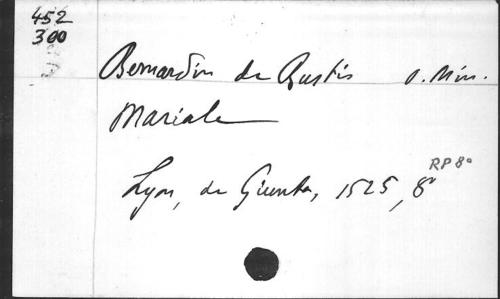 452
300
Bernardin de Bustis o. Min.
Mariale
RP 8°
Lyon, de Giunta, 1525, 8°